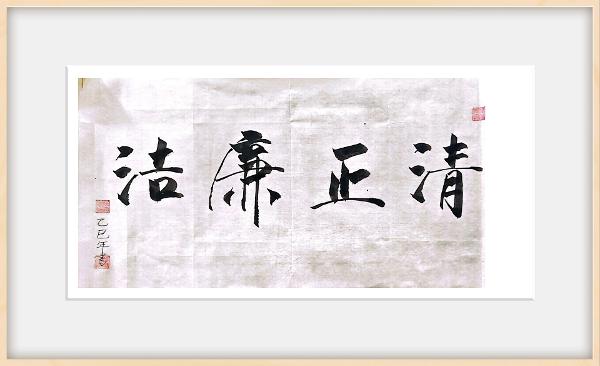 清正廉洁
乙巳年书